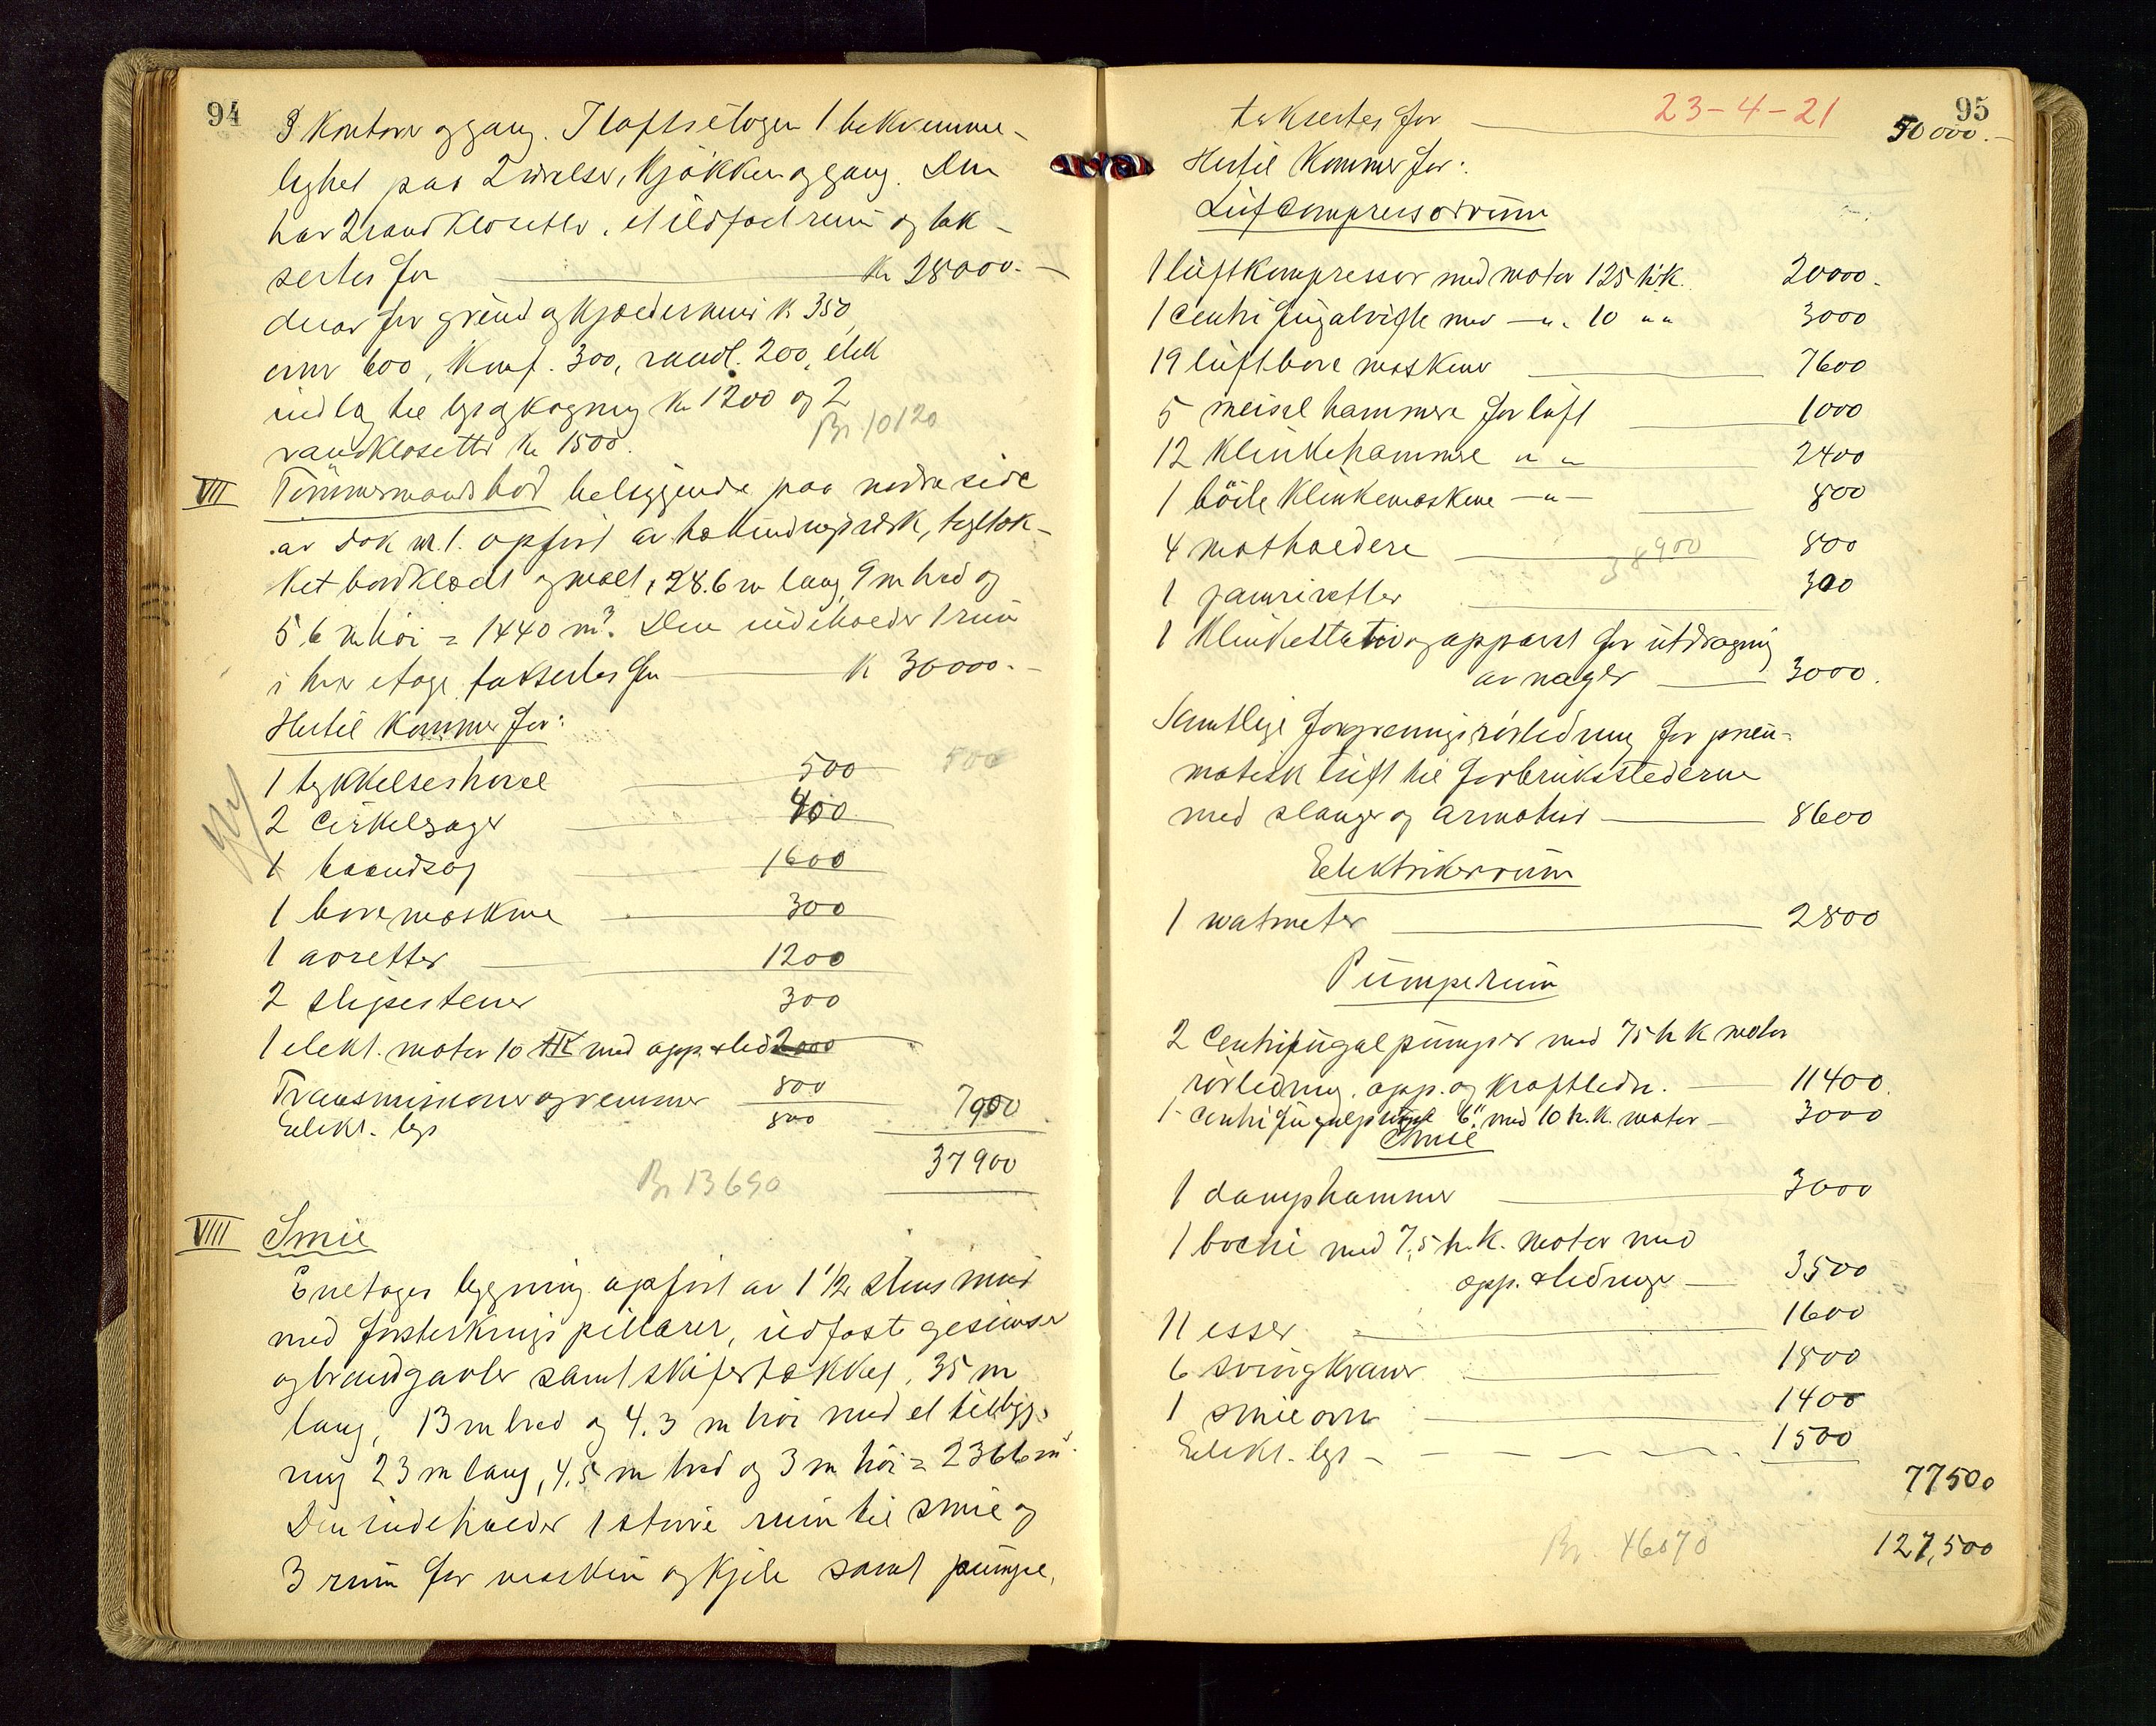 94
3 Kontorer og gang. I loftsetagen 1 bekvemme-
lighet paa 2 værelser, kjøkken og gang. Den
har 2 vandklosetter, et ildfast rum og tak-
sertes for Kr 28000.-
derav for grund og kjældermur kr 350,
ovner 600, Komf. 300, vandl. 200, elek
indlag til lys og kogning Kr 1200 og 2
vandklosetter Kr 1500.
Br 10120
VII Tømmermandsbod beliggende paa nordre side
av dok nr. 1. opført av bindingsverk, teglták-
ket bordklædt og malt, 28.6 m lang, 9 m bred og
5.6 m høi = 1440 m³. Den indeholder 1 rum
i hver etage taksertes for K 30000.-
Hertil kommer for:
1 tykkelseshøvel 500 500
2 Cirkelsager 400
1 baandsag 1600
1 boremaskine 300
1 avretter 1200
2 slipestener 300
1 elekt. motor 10 HK med app. & led 2000
Transmisioner og remmer 800 7900
Elekt. lys 800
37900
Br 13690
VIII Smie
Enetages bygning opført av 1 1/2 stens mur
med forsterknings pillarer, ildfaste gesimser
og brandgavler samt skifertækket, 35 m
lang, 13 m bred og 4.3 m høi med et tilbyg-
ning 23 m lang, 4,5 m bred og 3 m høi = 2366 m³.
Den indeholder 1 større rum til smie og
3 rum for maskin og kjele samt pumpe,
95
23-4-21
taksertes for 50000.-
Hertil kommer for:
Luftcompressorrum
1 luftkompressor med motor 125 h.k. 20000.
1 Centrifugalvifte med -"- 10 " " 3000
19 luftbore maskiner 7600
5 meisel hammere for luft 1000
12 Klinkehammere " " 2400
1 bøile Klinkemaskine -"- 800
4 motholdere 38900 800
1 300
1 Klinkestativ og apparat for utdragning
av nagler 3000.
Samtlige forgreningsrørledning for pneu-
matisk luft til forbruksstederne
med slanger og armatur 8600
Elektrikerrum
1 watmeter 2800
Pumperum
2 Centrifugalpumper med 75 h k motor
rørledning, app. og kraftledn. 11400
1 Centrifugalpumpe 6" med 10 h.k. motor 3000
Smie
1 damphammer 3000
1 med 7,5 h.k. motor med
app. & ledninger 3500
11 esser 1600
6 svingkraner 1800
1 smieovn 1400
Elekt. lys 1500
77500
Br 46070 127,500